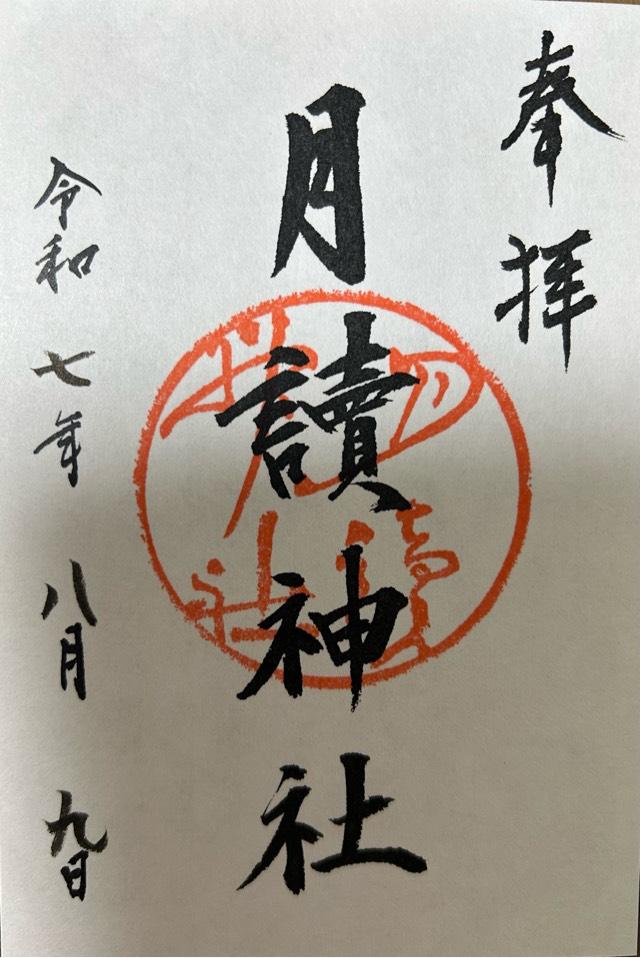 奉拝
月讀神社
令和七年八月九日